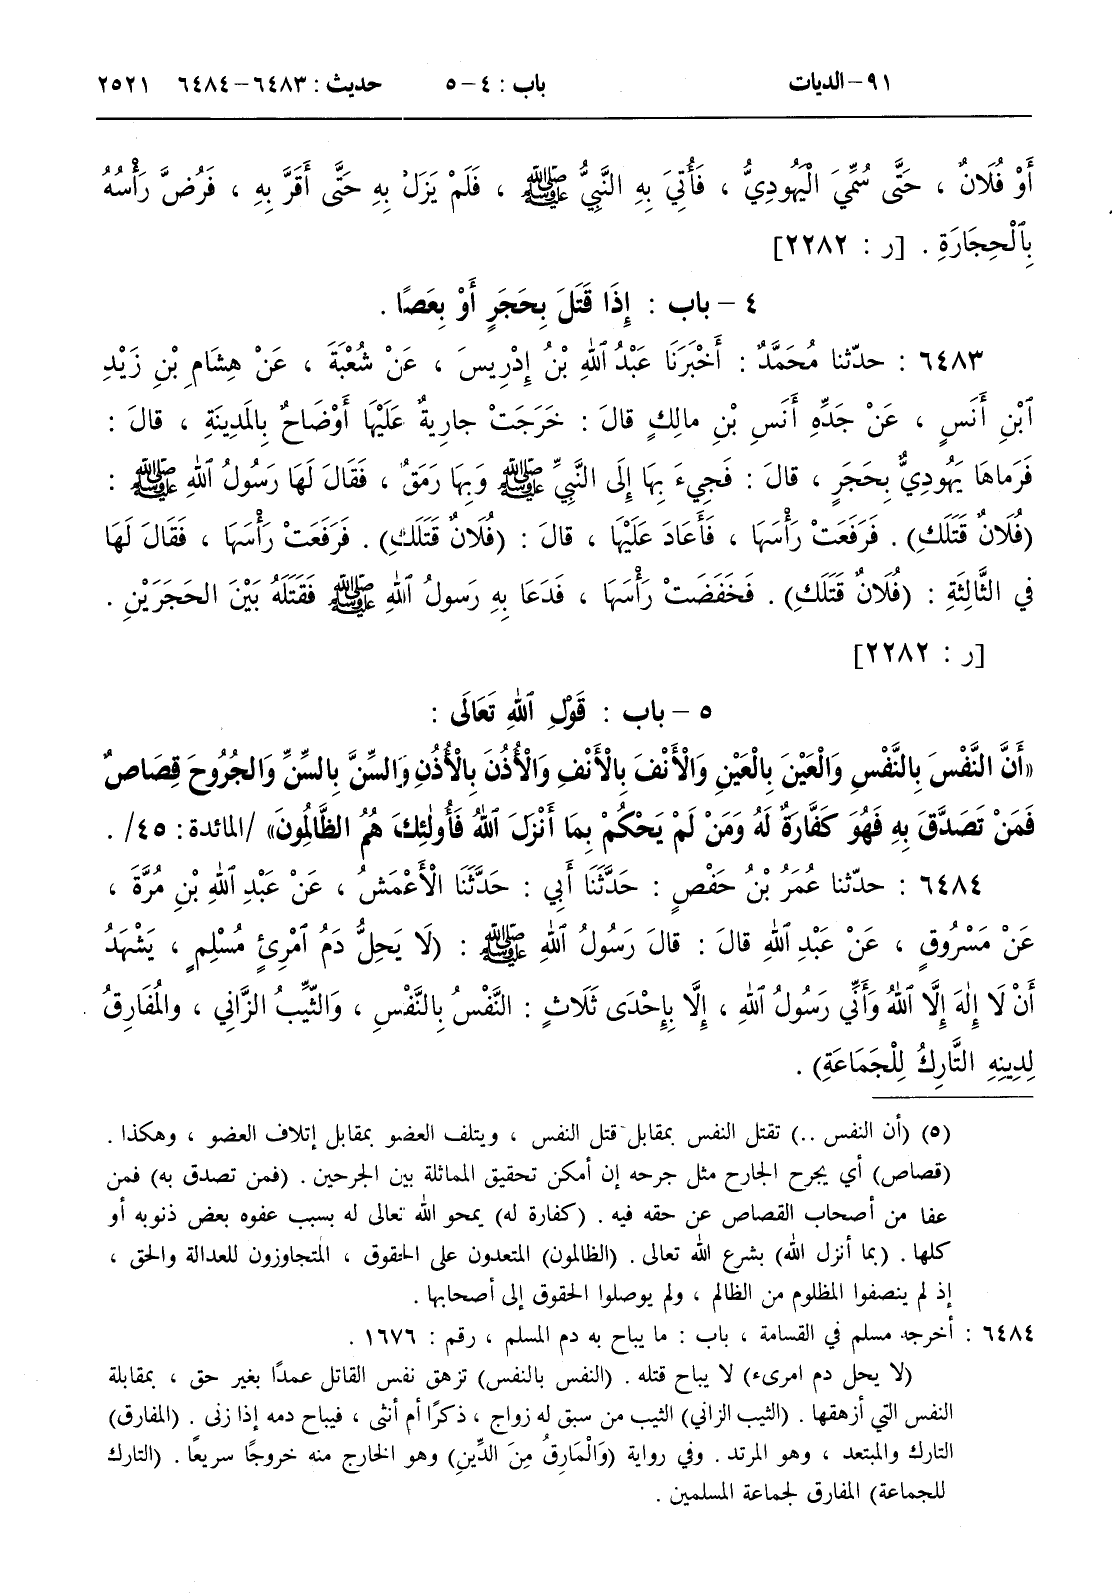 ٩١- الديات باب : ٤ - ٥ حديث : ٦٤٨٣ - ٦٤٨٤ ٢٥٢١
أَوْ فُلَانٌ ، حَتَّى سُمِّيَ الْيَهُودِيُّ ، فَأُتِيَ بِهِ النَّبِيُّ ﷺ ، فَلَمْ يَزَلْ بِهِ حَتَّى أَقَرَّ بِهِ ، فَرُضَّ رَأْسُهُ
بِٱلْحِجَارَةِ . [ر : ٢٢٨٢]
٤ - باب : إِذَا قَتَلَ بِحَجَرٍ أَوْ بِعَصًا .
٦٤٨٣ : حدّثنا مُحَمَّدٌ : أَخْبَرَنَا عَبْدُ ٱللهِ بْنُ إِدْرِيسَ ، عَنْ شُعْبَةَ ، عَنْ هِشَامِ بْنِ زَيْدِ
ٱبْنِ أَنَسٍ ، عَنْ جَدِّهِ أَنَسِ بْنِ مالِكٍ قالَ : خَرَجَتْ جارِيةٌ عَلَيْهَا أَوْضَاحٌ بِالمَدِينَةِ ، قالَ :
فَرَماهَا يَهُودِيٌّ بِحَجَرٍ ، قالَ : فَجِيءَ بِهَا إِلَى النَّبِيِّ ﷺ وَبِهَا رَمَقٌ ، فَقَالَ لَهَا رَسُولُ ٱللهِ ﷺ :
(فُلَانٌ قَتَلَكِ) . فَرَفَعَتْ رَأْسَهَا ، فَأَعَادَ عَلَيْهَا ، قالَ : (فُلَانٌ قَتَلَكِ) . فَرَفَعَتْ رَأْسَهَا ، فَقَالَ لَهَا
في الثَّالِثَةِ : (فُلَانٌ قَتَلَكِ) . فَخَفَضَتْ رَأْسَهَا ، فَدَعَا بِهِ رَسولُ ٱللهِ ﷺ فَقَتَلَهُ بَيْنَ الحَجَرَيْنِ .
[ر : ٢٢٨٢]
٥ - باب : قَوْلِ ٱللهِ تَعَالَى :
«أَنَّ النَّفْسَ بِالنَّفْسِ وَالْعَيْنَ بِالْعَيْنِ وَالْأَنْفَ بِالْأَنْفِ وَالْأُذُنَ بِالْأُذُنِ وَالسِّنَّ بِالسِّنِّ وَالجُرُوحَ قِصَاصٌ
فَمَنْ تَصَدَّقَ بِهِ فَهُوَ كَفَّارَةٌ لَهُ وَمَنْ لَمْ يَحْكُمْ بِمَا أَنْزَلَ ٱللهُ فَأُولٰئِكَ هُمُ الظَّالِمُونَ» /المائدة : ٤٥/ .
٦٤٨٤ : حدّثنا عُمَرُ بْنُ حَفْصٍ : حَدَّثَنَا أَبِي : حَدَّثَنَا الْأَعْمَشُ ، عَنْ عَبْدِ ٱللهِ بْنِ مُرَّةَ ،
عَنْ مَسْرُوقٍ ، عَنْ عَبْدِ ٱللهِ قالَ : قالَ رَسُولُ ٱللهِ ﷺ : (لَا يَحِلُّ دَمُ ٱمْرِئٍ مُسْلِمٍ ، يَشْهَدُ
أَنْ لَا إِلٰهَ إِلَّا ٱللهُ وَأَنِّي رَسُولُ ٱللهِ ، إِلَّا بِإِحْدَى ثَلَاثٍ : النَّفْسُ بِالنَّفْسِ ، وَالثَّيِّبُ الزَّانِي ، وَالمُفَارِقُ
لِدِينِهِ التَّارِكُ لِلْجَمَاعَةِ) .
(٥) (أن النفس ..) تقتل النفس بمقابل قتل النفس ، ويتلف العضو بمقابل إتلاف العضو ، وهكذا .
(قصاص) أي يجرح الجارح مثل جرحه إن أمكن تحقيق المماثلة بين الجرحين . (فمن تصدق به) فمن
عفا من أصحاب القصاص عن حقه فيه . (كفارة له) يمحو الله تعالى له بسبب عفوه بعض ذنوبه أو
كلها . (بما أنزل الله) بشرع الله تعالى . (الظالمون) المتعدون على الحقوق ، المتجاوزون للعدالة والحق ،
إذ لم ينصفوا المظلوم من الظالم ، ولم يوصلوا الحقوق إلى أصحابها .
٦٤٨٤ : أخرجه مسلم في القسامة ، باب : ما يباح به دم المسلم ، رقم : ١٦٧٦ .
(لا يحل دم امرىء) لا يباح قتله . (النفس بالنفس) تزهق نفس القاتل عمدًا بغير حق ، بمقابلة
النفس التي أزهقها . (الثيب الزاني) الثيب من سبق له زواج ، ذكرًا أم أنثى ، فيباح دمه إذا زنى . (المفارق)
التارك والمبتعد ، وهو المرتد . وفي رواية (وَالْمَارِقُ مِنَ الدِّينِ) وهو الخارج منه خروجًا سريعًا . (التارك
للجماعة) المفارق لجماعة المسلمين .